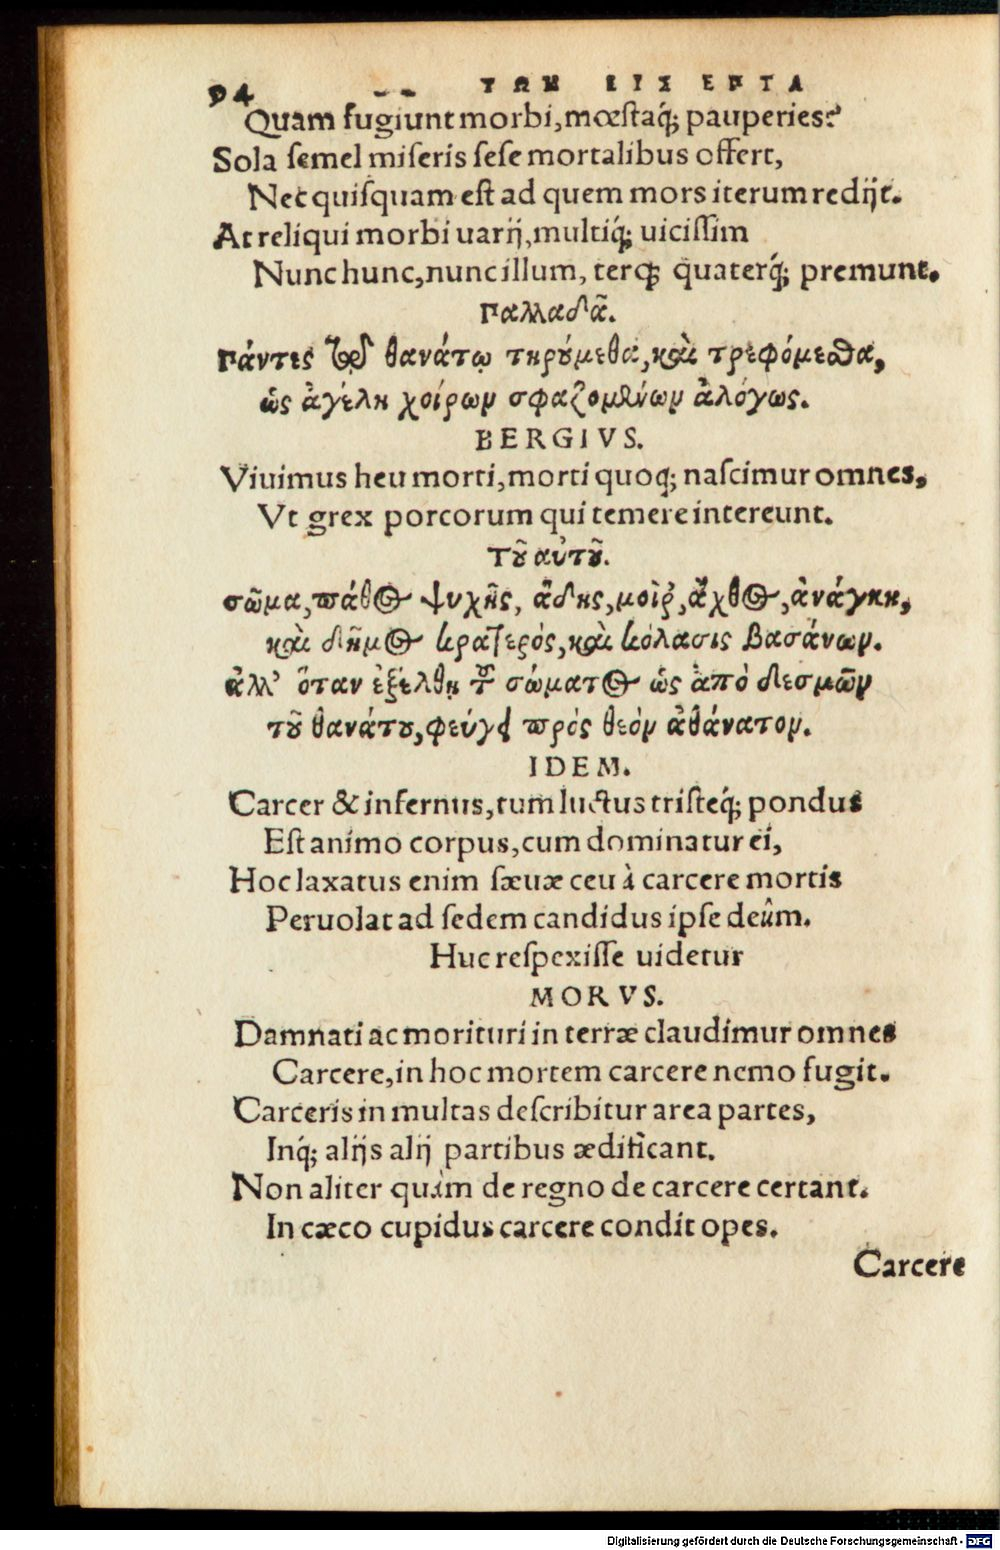 94 ΤΩΝ ΕΙΣ ΕΠΤΑ
Quam fugiunt morbi, mœstaq́; pauperies?
Sola semel miseris sese mortalibus offert,
Nec quisquam est ad quem mors iterum redijt.
At reliqui morbi uarij, multiq́; uicissim
Nunc hunc, nunc illum, terq; quaterq́; premunt.
Παλλαδᾶ.
Πάντες τῷ θανάτῳ τηρούμεθα, καὶ τρεφόμεσθα,
ὡς ἀγέλη χοίρων σφαζομένων ἀλόγως.
BERGIVS.
Viuimus heu morti, morti quoq; nascimur omnes,
Vt grex porcorum qui temere intereunt.
Τοῦ αὐτοῦ.
σῶμα, πάθος ψυχῆς, ἅδης, μοῖρ, ἄχθος, ἀνάγκη,
καὶ δῆμος κρατερὸς, καὶ κόλασις βασάνων.
ἀλλ' ὅταν ἐξέλθῃ τοῦ σώματος ὡς ἀπὸ δεσμῶν
τοῦ θανάτου, φεύγει πρὸς θεὸν ἀθάνατον.
IDEM.
Carcer & infernus, tum luctus tristeq́; pondus
Est animo corpus, cum dominatur ei,
Hoc laxatus enim sæuæ ceu à carcere mortis
Peruolat ad sedem candidus ipse deûm.
Huc respexisse uidetur
MORVS.
Damnati ac morituri in terræ claudimur omnes
Carcere, in hoc mortem carcere nemo fugit.
Carceris in multas describitur area partes,
Inq́; alijs alij partibus ædificant.
Non aliter quàm de regno de carcere certant.
In cæco cupidus carcere condit opes.
Carcere
Digitalisierung gefördert durch die Deutsche Forschungsgemeinschaft - DFG